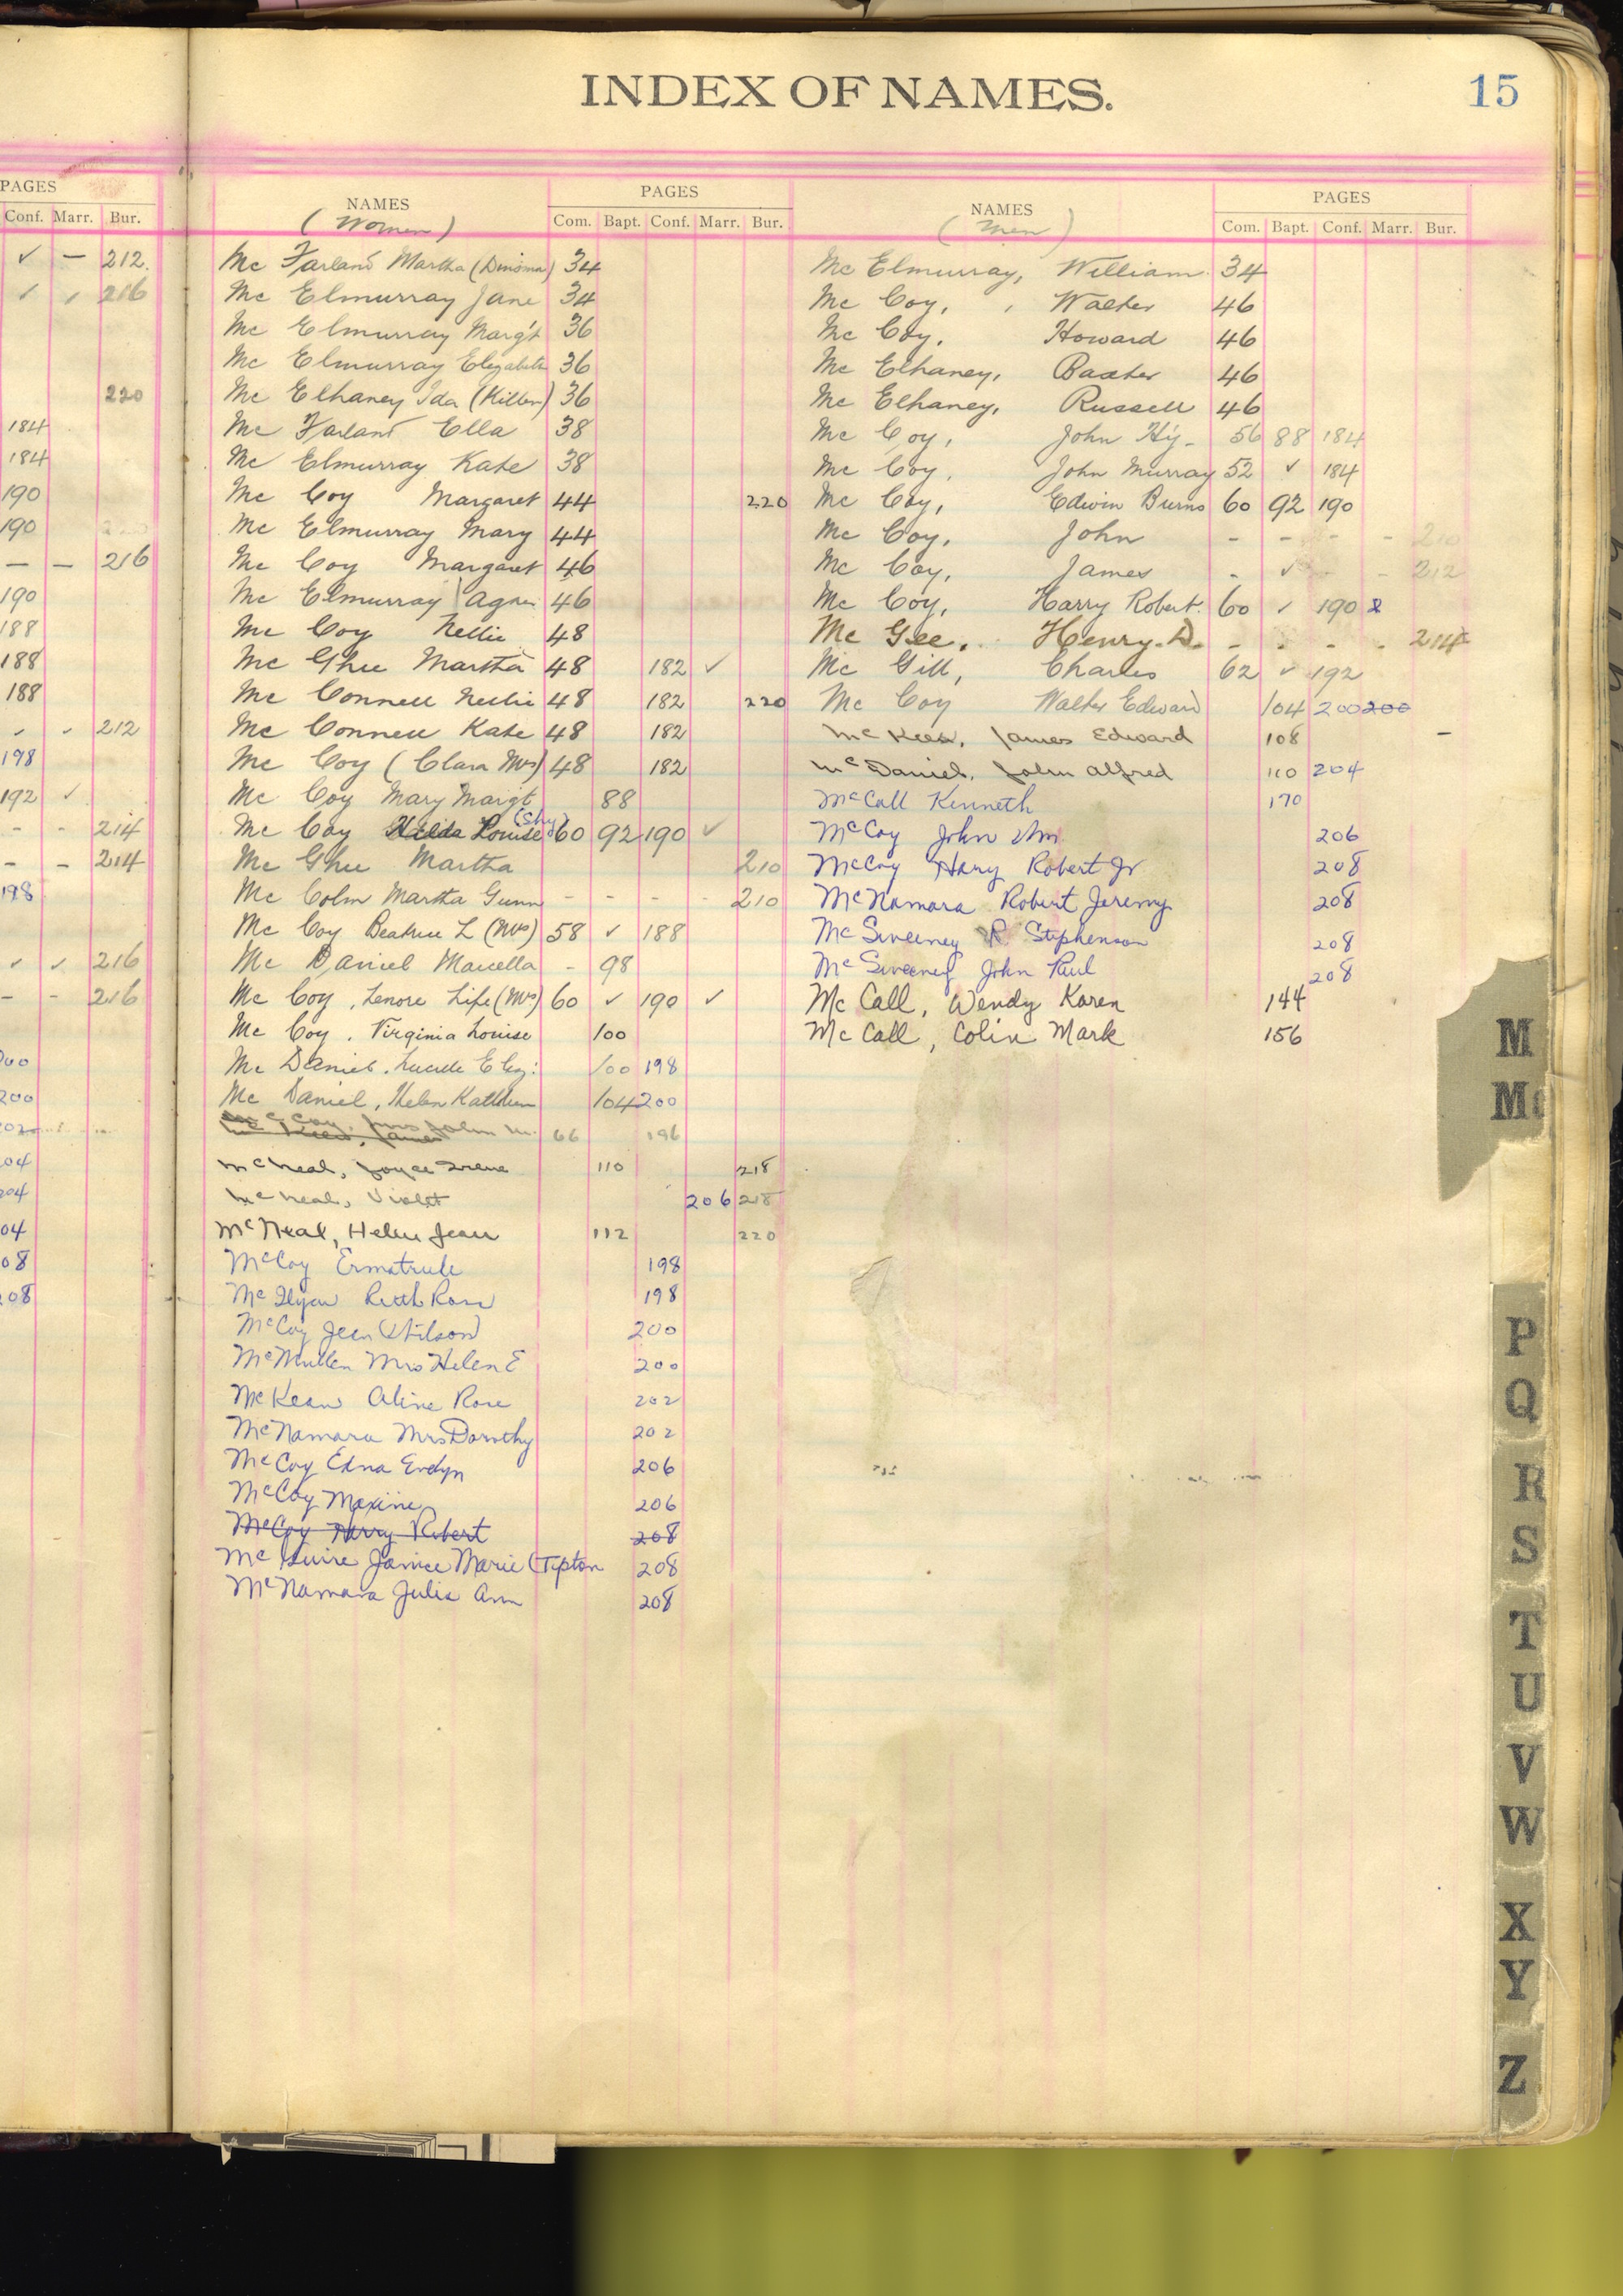 INDEX OF NAMES.
15
PAGES
Conf. Marr. Bur.
✓ — 212.
✓ ✓ 216
220
184
184
190
190
— — 216
190
188
188
188
✓ ✓ 212
198
192 ✓
- - 214
- - 214
198
✓ ✓ 216
- - 216
200
200
04
204
04
08
208
NAMES
(Women)
PAGES
Com. Bapt. Conf. Marr. Bur.
Mc Farland Martha 34
Mc Elmurray Jane 34
Mc Elmurray Marg't 36
Mc Elmurray Elizabeth 36
Mc Elhaney Ida 36
Mc Farland Ella 38
Mc Elmurray Kate 38
Mc Coy Margaret 44 220
Mc Elmurray Mary 44
Mc Coy Margaret 46
Mc Elmurray Agnes 46
Mc Coy Nellie 48
Mc Ghee Martha 48 182 ✓
Mc Connell Nellie 48 182 220
Mc Connell Kate 48 182
Mc Coy (Clara Mrs) 48 182
Mc Coy Mary Marg't 88
Mc Coy Hilda Louise (Shy) 60 92 190 ✓
Mc Ghee Martha 210
Mc Colm Martha Gunn - - - - 210
Mc Coy Beatrice L (Mrs) 58 ✓ 188
Mc Daniel Marcella - 98
Mc Coy, Lenore Life (Mrs) 60 ✓ 190 ✓
Mc Coy, Virginia Louise 100
Mc Daniel, Lucille Eliz: 100 198
Mc Daniel, Helen Kathleen 104 200
McCoy, Mrs John M. 66 196
McNeal, Joyce Irene 110 218
McNeal, Violet 206 218
McNeal, Helen Jean 112 220
McCoy Ermatrude 198
Ruth Rose 198
McCoy Jean (Wilson) 200
McMullen Mrs Helen E 200
McKean Aline Rose 202
McNamara Mrs Dorothy 202
McCoy Edna Evelyn 206
McCoy Maxine 206
McCoy Harry Robert 208
McGuire Janice Marie (Tipton 208
McNamara Julia Ann 208
NAMES
(Men)
PAGES
Com. Bapt. Conf. Marr. Bur.
Mc Elmurray, William 34
Mc Coy, Walter 46
Mc Coy, Howard 46
Mc Elhaney, Baxter 46
Mc Elhaney, Russell 46
Mc Coy, John Hy- 56 88 184
Mc Coy, John Murray 52 ✓ 184
Mc Coy, Edwin Burns 60 92 190
Mc Coy, John - - - - 210
Mc Coy, James - ✓ - - 212
Mc Coy, Harry Robert. 60 ✓ 190
Mc Gee, Henry. D. - - - - 214
Mc Gill, Charles 62 ✓ 192
Mc Coy Walter Edward 104 200 200
McKean, James Edward 108 -
McDaniel, John Alfred 110 204
McCall Kenneth 170
McCoy John Wm 206
McCoy Harry Robert Jr 208
McNamara Robert Jeremy 208
McSweeney R. Stephenson 208
McSweeney John Paul 208
Mc Call, Wendy Karen 144
Mc Call, Colin Mark 156
M
Mc
P
Q
R
S
T
U
V
W
X
Y
Z